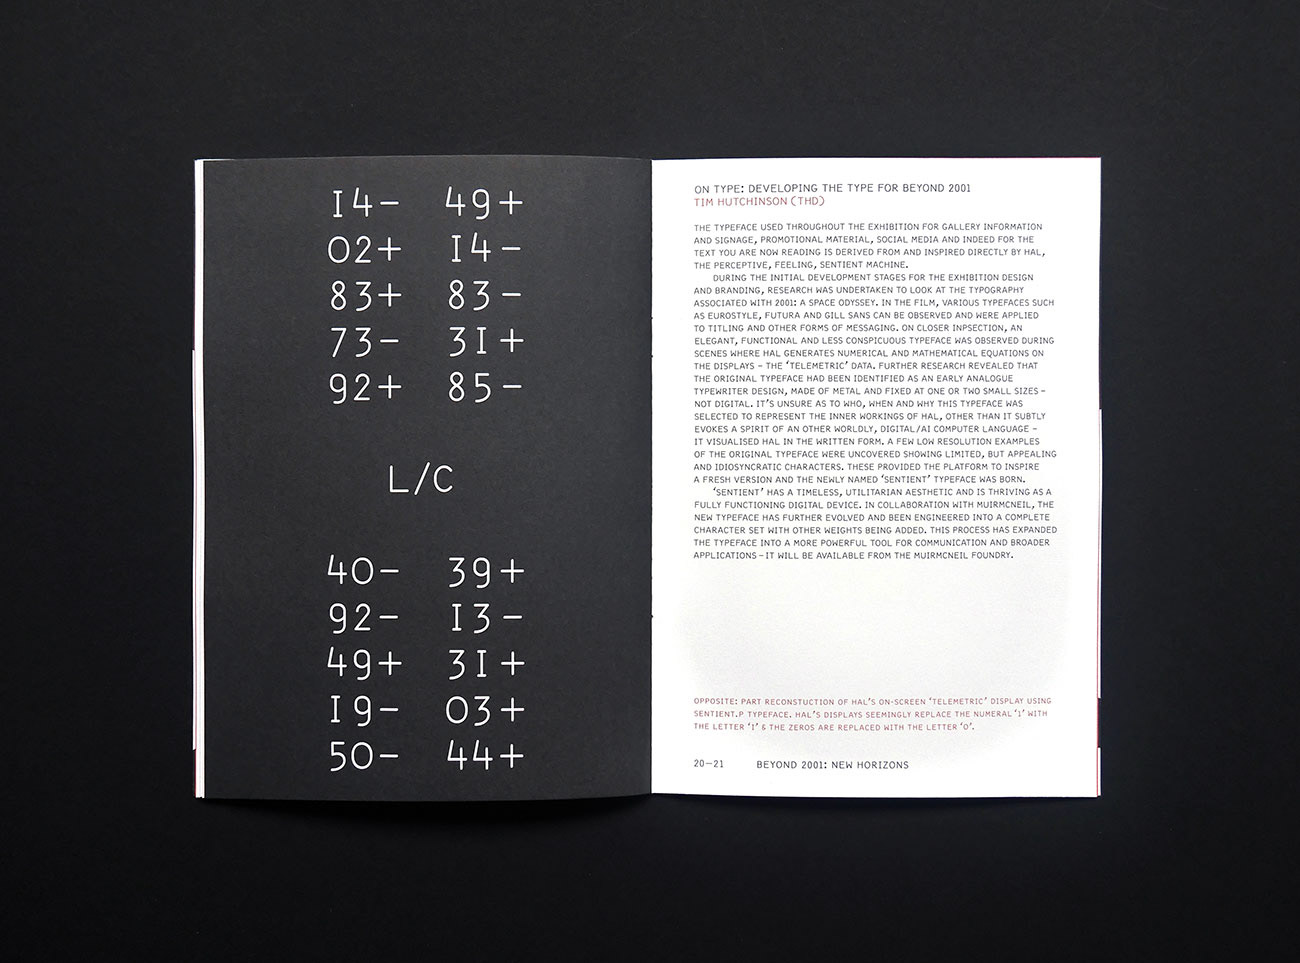 I4- 49+
O2+ I4-
83+ 83-
73- 3I+
92+ 85-
L/C
4O- 39+
92- I3-
49+ 3I+
I9- O3+
5O- 44+
ON TYPE: DEVELOPING THE TYPE FOR BEYOND 2001
TIM HUTCHINSON (THD)
THE TYPEFACE USED THROUGHOUT THE EXHIBITION FOR GALLERY INFORMATION
AND SIGNAGE, PROMOTIONAL MATERIAL, SOCIAL MEDIA AND INDEED FOR THE
TEXT YOU ARE NOW READING IS DERIVED FROM AND INSPIRED DIRECTLY BY HAL,
THE PERCEPTIVE, FEELING, SENTIENT MACHINE.
DURING THE INITIAL DEVELOPMENT STAGES FOR THE EXHIBITION DESIGN
AND BRANDING, RESEARCH WAS UNDERTAKEN TO LOOK AT THE TYPOGRAPHY
ASSOCIATED WITH 2001: A SPACE ODYSSEY. IN THE FILM, VARIOUS TYPEFACES SUCH
AS EUROSTYLE, FUTURA AND GILL SANS CAN BE OBSERVED AND WERE APPLIED
TO TITLING AND OTHER FORMS OF MESSAGING. ON CLOSER INPSECTION, AN
ELEGANT, FUNCTIONAL AND LESS CONSPICUOUS TYPEFACE WAS OBSERVED DURING
SCENES WHERE HAL GENERATES NUMERICAL AND MATHEMATICAL EQUATIONS ON
THE DISPLAYS – THE ‘TELEMETRIC’ DATA. FURTHER RESEARCH REVEALED THAT
THE ORIGINAL TYPEFACE HAD BEEN IDENTIFIED AS AN EARLY ANALOGUE
TYPEWRITER DESIGN, MADE OF METAL AND FIXED AT ONE OR TWO SMALL SIZES –
NOT DIGITAL. IT’S UNSURE AS TO WHO, WHEN AND WHY THIS TYPEFACE WAS
SELECTED TO REPRESENT THE INNER WORKINGS OF HAL, OTHER THAN IT SUBTLY
EVOKES A SPIRIT OF AN OTHER WORLDLY, DIGITAL/AI COMPUTER LANGUAGE –
IT VISUALISED HAL IN THE WRITTEN FORM. A FEW LOW RESOLUTION EXAMPLES
OF THE ORIGINAL TYPEFACE WERE UNCOVERED SHOWING LIMITED, BUT APPEALING
AND IDIOSYNCRATIC CHARACTERS. THESE PROVIDED THE PLATFORM TO INSPIRE
A FRESH VERSION AND THE NEWLY NAMED ‘SENTIENT’ TYPEFACE WAS BORN.
‘SENTIENT’ HAS A TIMELESS, UTILITARIAN AESTHETIC AND IS THRIVING AS A
FULLY FUNCTIONING DIGITAL DEVICE. IN COLLABORATION WITH MUIRMCNEIL, THE
NEW TYPEFACE HAS FURTHER EVOLVED AND BEEN ENGINEERED INTO A COMPLETE
CHARACTER SET WITH OTHER WEIGHTS BEING ADDED. THIS PROCESS HAS EXPANDED
THE TYPEFACE INTO A MORE POWERFUL TOOL FOR COMMUNICATION AND BROADER
APPLICATIONS – IT WILL BE AVAILABLE FROM THE MUIRMCNEIL FOUNDRY.
OPPOSITE: PART RECONSTUCTION OF HAL’S ON-SCREEN ‘TELEMETRIC’ DISPLAY USING
SENTIENT.P TYPEFACE. HAL’S DISPLAYS SEEMINGLY REPLACE THE NUMERAL ‘1’ WITH
THE LETTER ‘I’ & THE ZEROS ARE REPLACED WITH THE LETTER ‘O’.
20—21 BEYOND 2001: NEW HORIZONS